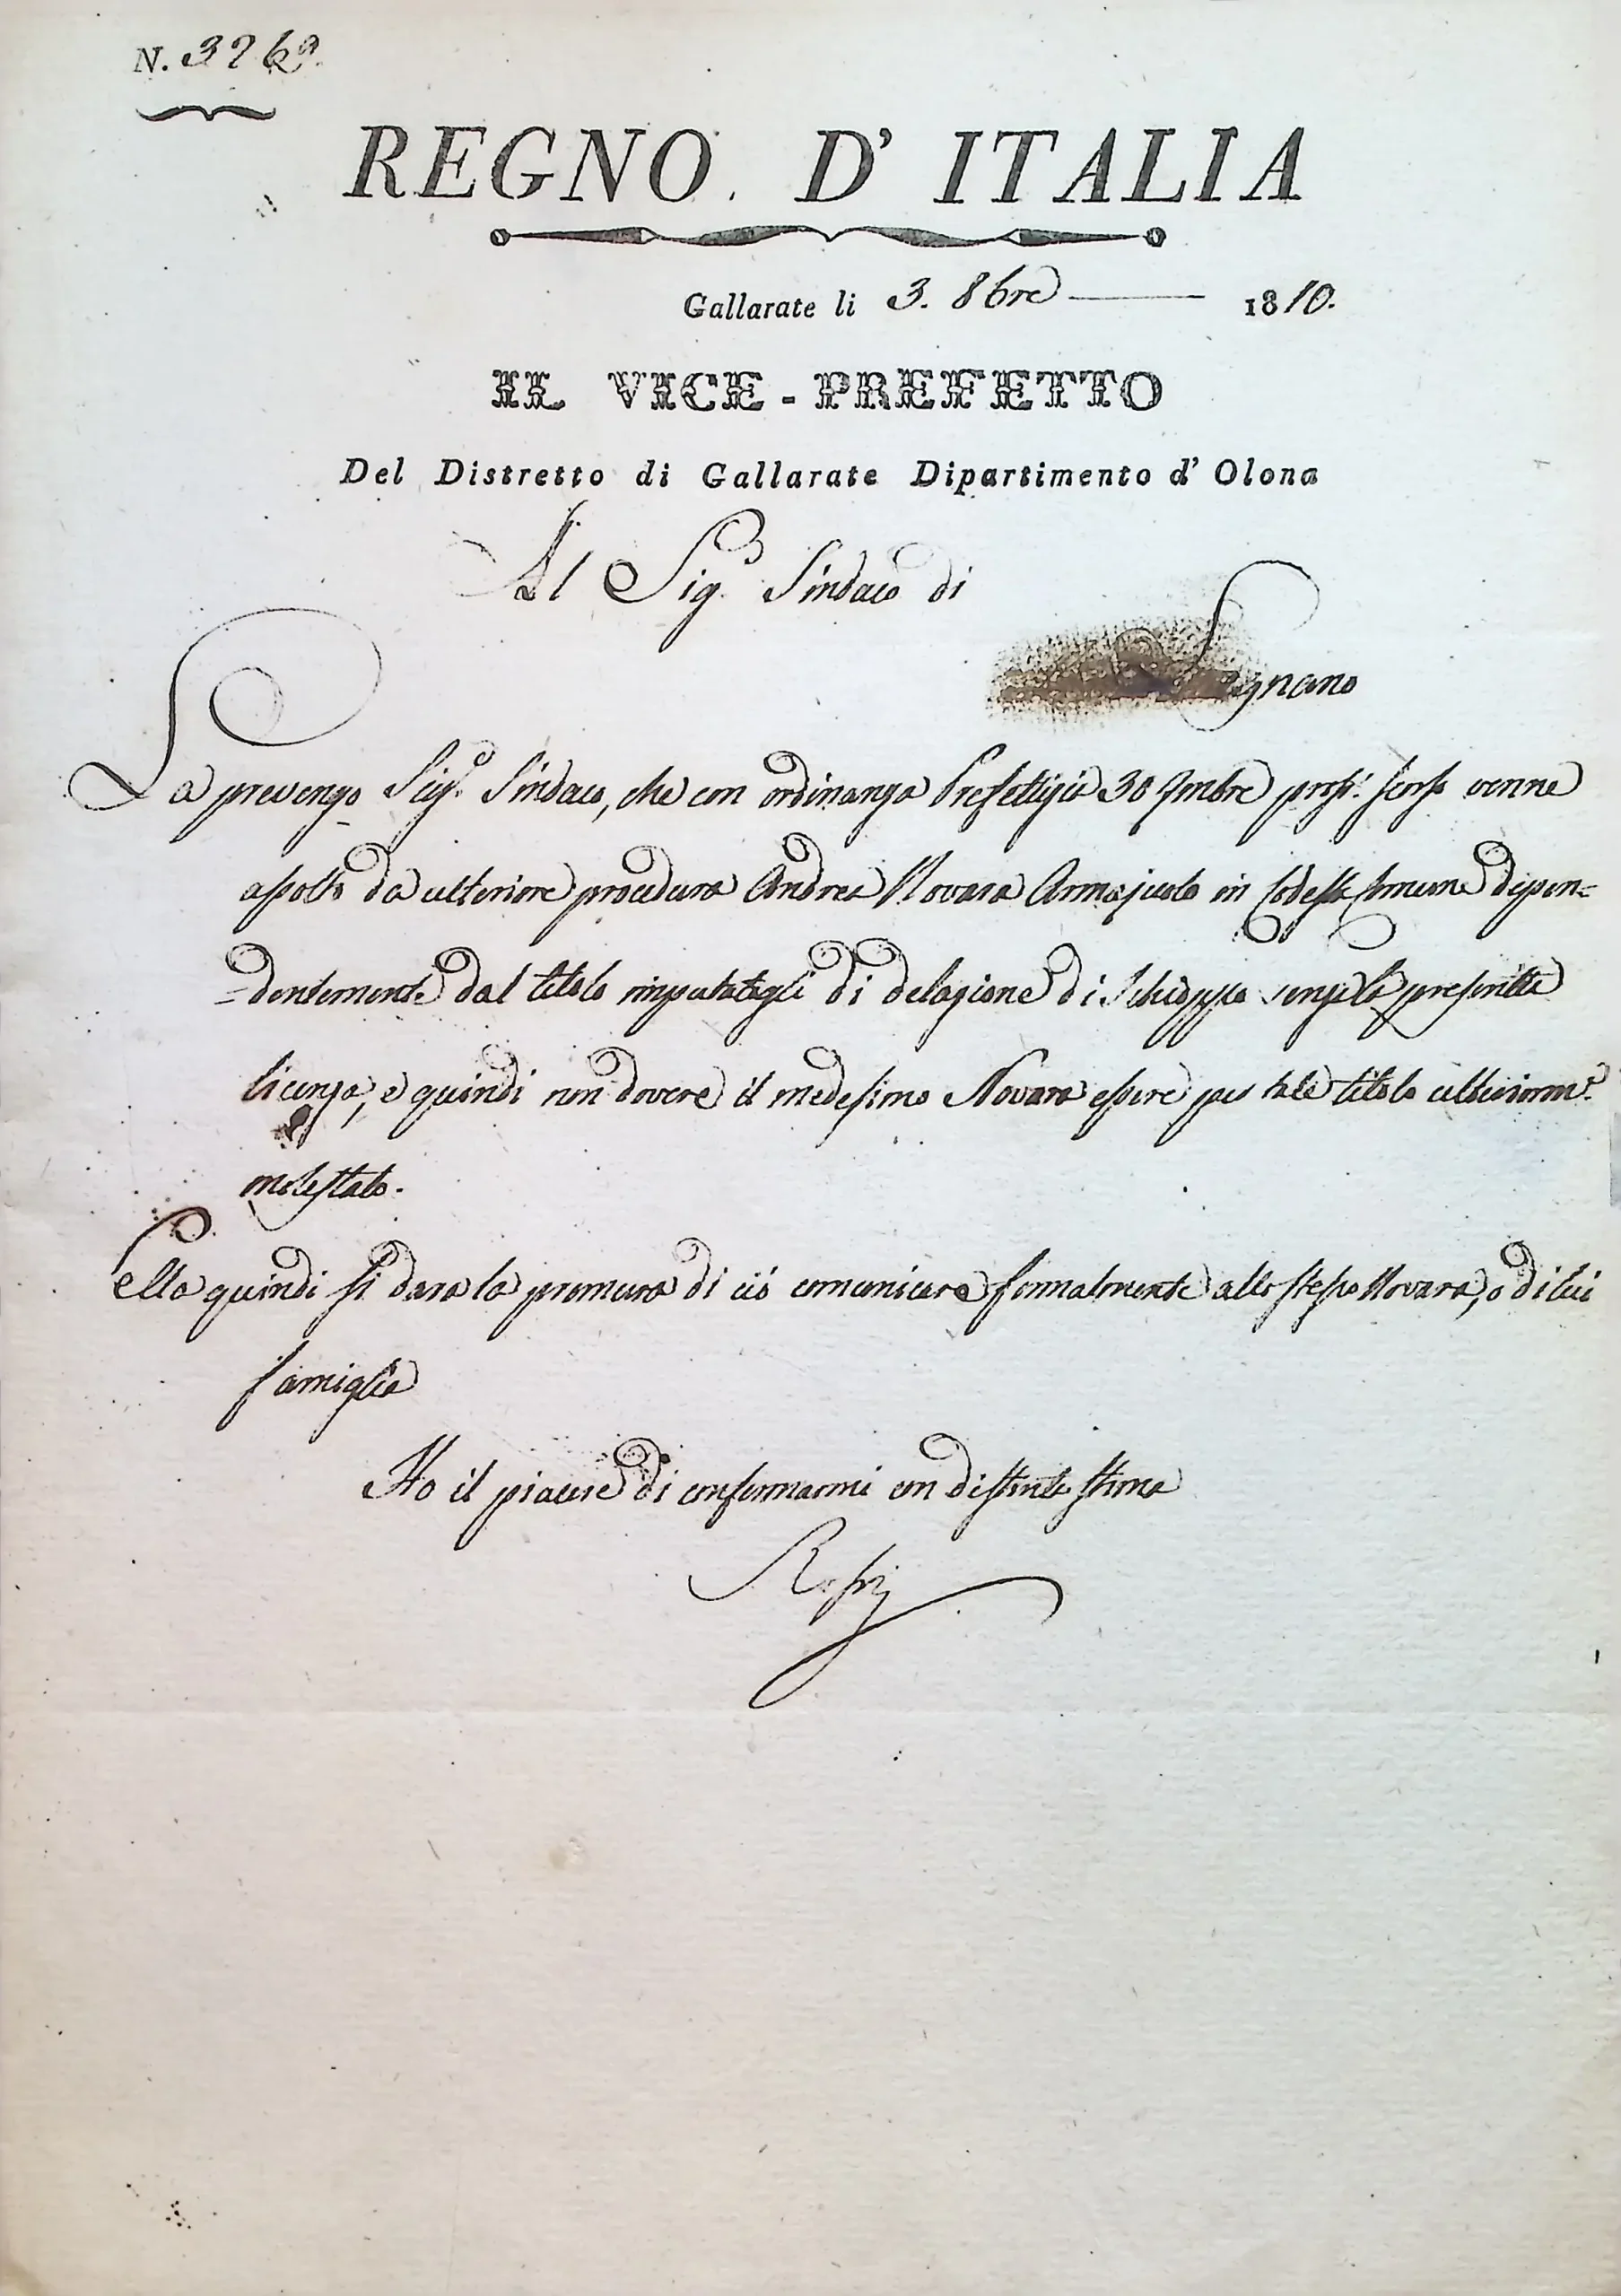 N. 3269.
REGNO D' ITALIA
Gallarate li 3. 8bre 1810.
IL VICE-PREFETTO
Del Distretto di Gallarate Dipartimento d' Olona
Al Sig.r Sindaco di
Legnano
La prevengo Sig.r Sindaco, che con ordinanza Prefettizia 30 7mbre pross. scorso venne
assolto da ulteriore procedura Andrea Novara Armajuolo in codesta Comune dipen=
=dentemente dal titolo imputatogli di delazione di Schioppo senza la prescritta
licenza, e quindi non dovere il medesimo Novara essere per tale titolo ulteriorm.e
molestato.
Ella quindi si darà la premura di ciò comunicare formalmente allo stesso Novara, o di lui
famiglia
Ho il piacere di confermarmi con distinta stima